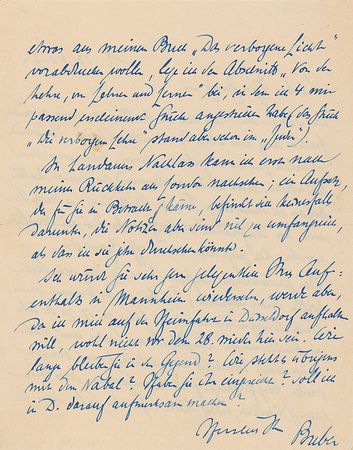 etwas aus meinem Buch „Das verborgene Licht"
vorabdrucken wollen, lege ich den Abschnitt „Von der
Lehre, vom Lehren und Lernen" bei, in dem ich 4 mir
passend erscheinende Stücke angestrichen habe (das Stück
„Die verborgene Lehre" stand aber schon im „Juden").
In Landauers Nachlass kann ich erst nach
meiner Rückkehr aus London nachsehen; ein Aufsatz,
der für Sie in Betracht käme, befindet sich keinesfalls
darunter, die Notizen aber sind viel zu umfangreich,
als dass ich sie jetzt durchsehen könnte.
Ich würde Sie sehr gern gelegentlich Ihres Auf-
enthalts in Mannheim wiedersehen, werde aber,
da ich mich auf der Heimfahrt in Düsseldorf aufhalten
will, wohl nicht vor dem 28. wieder hier sein. Wie
lange bleiben Sie in der Gegend? Wie steht es übrigens
mit dem Nabal? Haben Sie ihn eingereicht? Soll ich
in D. darauf aufmerksam machen?
Herzlich Ihr
Buber